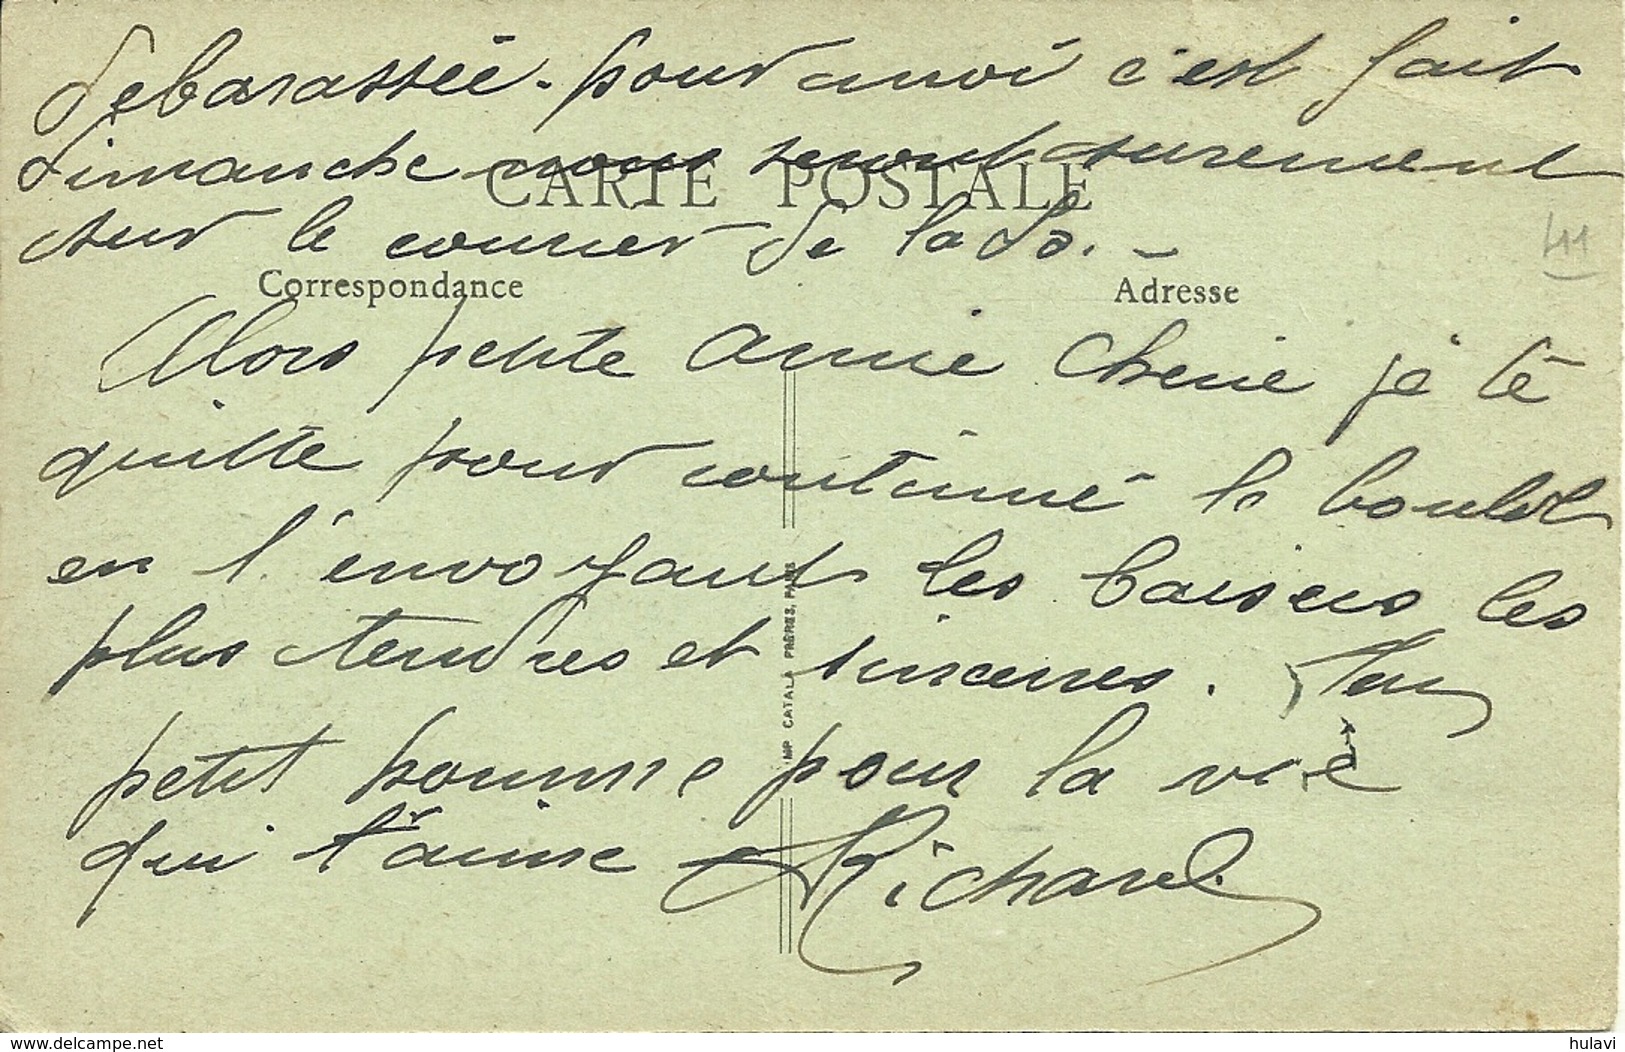 debarassée. pour moi c'est fait
dimanche nous seront surement
CARTE POSTALE
sur le courrier de la Do. –
411
Correspondance
Adresse
Alors petite amie cherie je te
quitte pour continué le boulot
en t'envoyant les baisers les
plus tendres et sinceres. Ton
petit homme pour la vie
qui t'aime Richard
IMP CATALA FRERES, PARIS
www.delcampe.net
hulavi